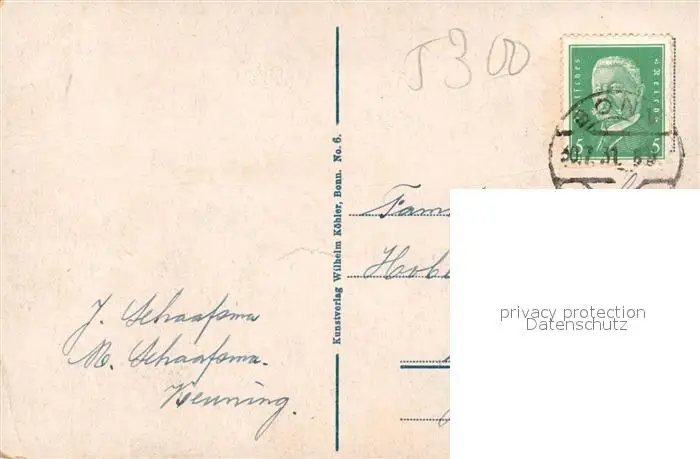 J 300
Deutsches Reich
5 5
BONN
30.7.31
Kunstverlag Wilhelm Köhler, Bonn. No. 6.
Fam
J. Schaafsma
M. Schaafsma.
Keuning.
privacy protection
Datenschutz